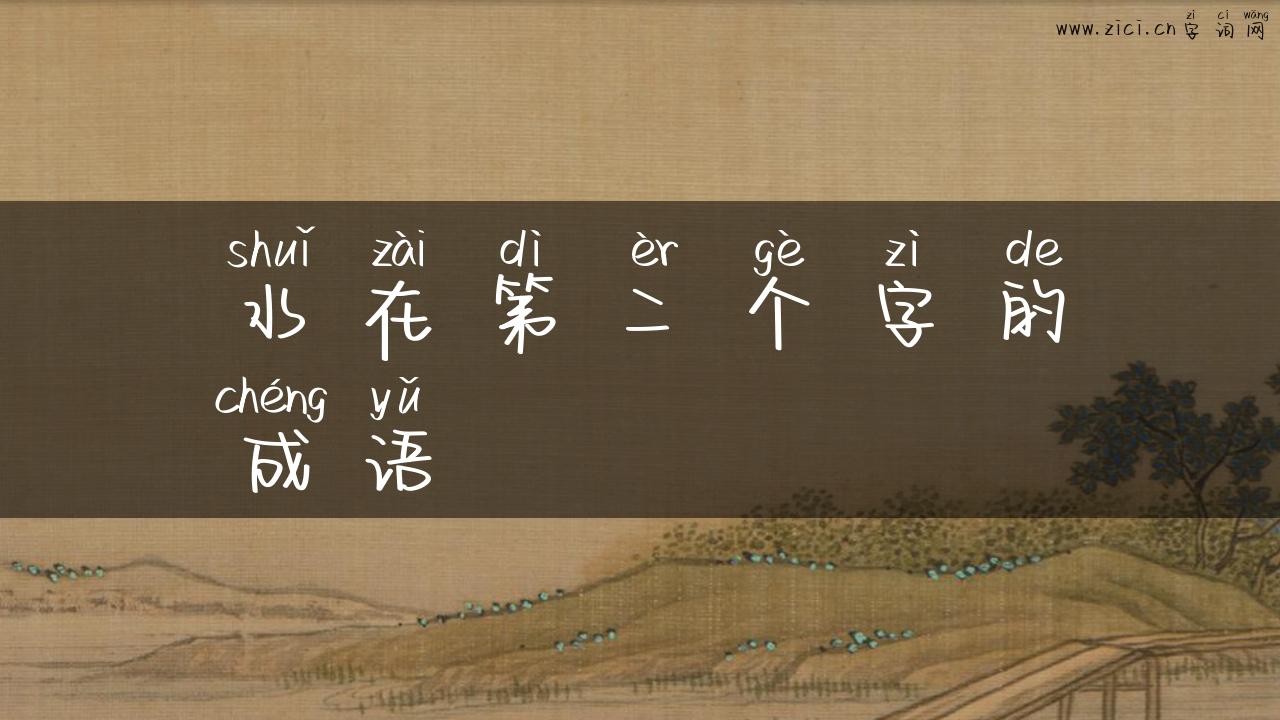 zì cí wǎng
www.zici.cn字词网
shuǐ zài dì èr gè zì de
水在第二个字的
chéng yǔ
成语